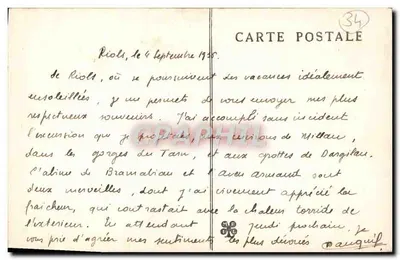 34
CARTE POSTALE
Riols, le 4 Septembre 1935.
de Riols, où se poursuivent des vacances idéalement
ensoleillées, je me permets de vous envoyer mes plus
respectueux souvenirs. J'ai accompli sans incident
l'excursion que je aux environs de Millau,
dans les gorges du Tarn, et aux grottes de Dargilan.
L'abîme de Bramabiau et l'aven armand sont
deux merveilles, dont j'ai vivement apprécié la
fraîcheur, qui contrastait avec la chaleur torride de
l'extérieur. En attendant jeudi prochain, je
vous prie d'agréer mes sentiments les plus dévoués